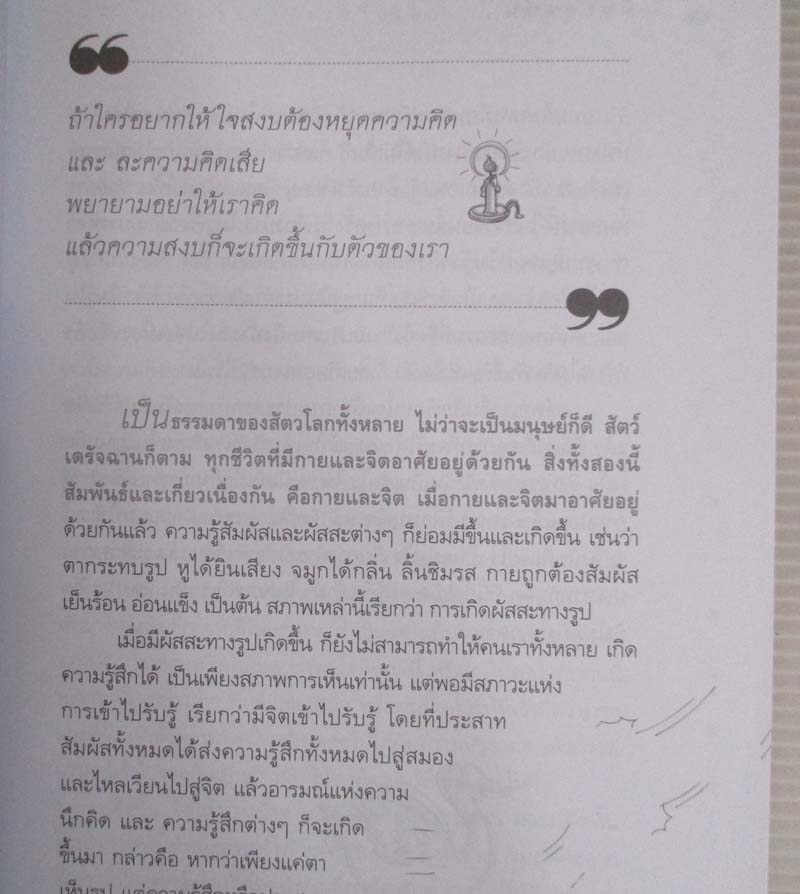 ถ้าใครอยากให้ใจสงบต้องหยุดความคิด
และ ละความคิดเสีย
พยายามอย่าให้เราคิด
แล้วความสงบก็จะเกิดขึ้นกับตัวของเรา
เป็นธรรมดาของสัตวโลกทั้งหลาย ไม่ว่าจะเป็นมนุษย์ก็ดี สัตว์
เดรัจฉานก็ตาม ทุกชีวิตที่มีกายและจิตอาศัยอยู่ด้วยกัน สิ่งทั้งสองนี้
สัมพันธ์และเกี่ยวเนื่องกัน คือกายและจิต เมื่อกายและจิตมาอาศัยอยู่
ด้วยกันแล้ว ความรู้สัมผัสและผัสสะต่างๆ ก็ย่อมมีขึ้นและเกิดขึ้น เช่นว่า
ตากระทบรูป หูได้ยินเสียง จมูกได้กลิ่น ลิ้นชิมรส กายถูกต้องสัมผัส
เย็นร้อน อ่อนแข็ง เป็นต้น สภาพเหล่านี้เรียกว่า การเกิดผัสสะทางรูป
เมื่อมีผัสสะทางรูปเกิดขึ้น ก็ยังไม่สามารถทำให้คนเราทั้งหลาย เกิด
ความรู้สึกได้ เป็นเพียงสภาพการเห็นเท่านั้น แต่พอมีสภาวะแห่ง
การเข้าไปรับรู้ เรียกว่ามีจิตเข้าไปรับรู้ โดยที่ประสาท
สัมผัสทั้งหมดได้ส่งความรู้สึกทั้งหมดไปสู่สมอง
และไหลเวียนไปสู่จิต แล้วอารมณ์แห่งความ
นึกคิด และ ความรู้สึกต่างๆ ก็จะเกิด
ขึ้นมา กล่าวคือ หากว่าเพียงแค่ตา